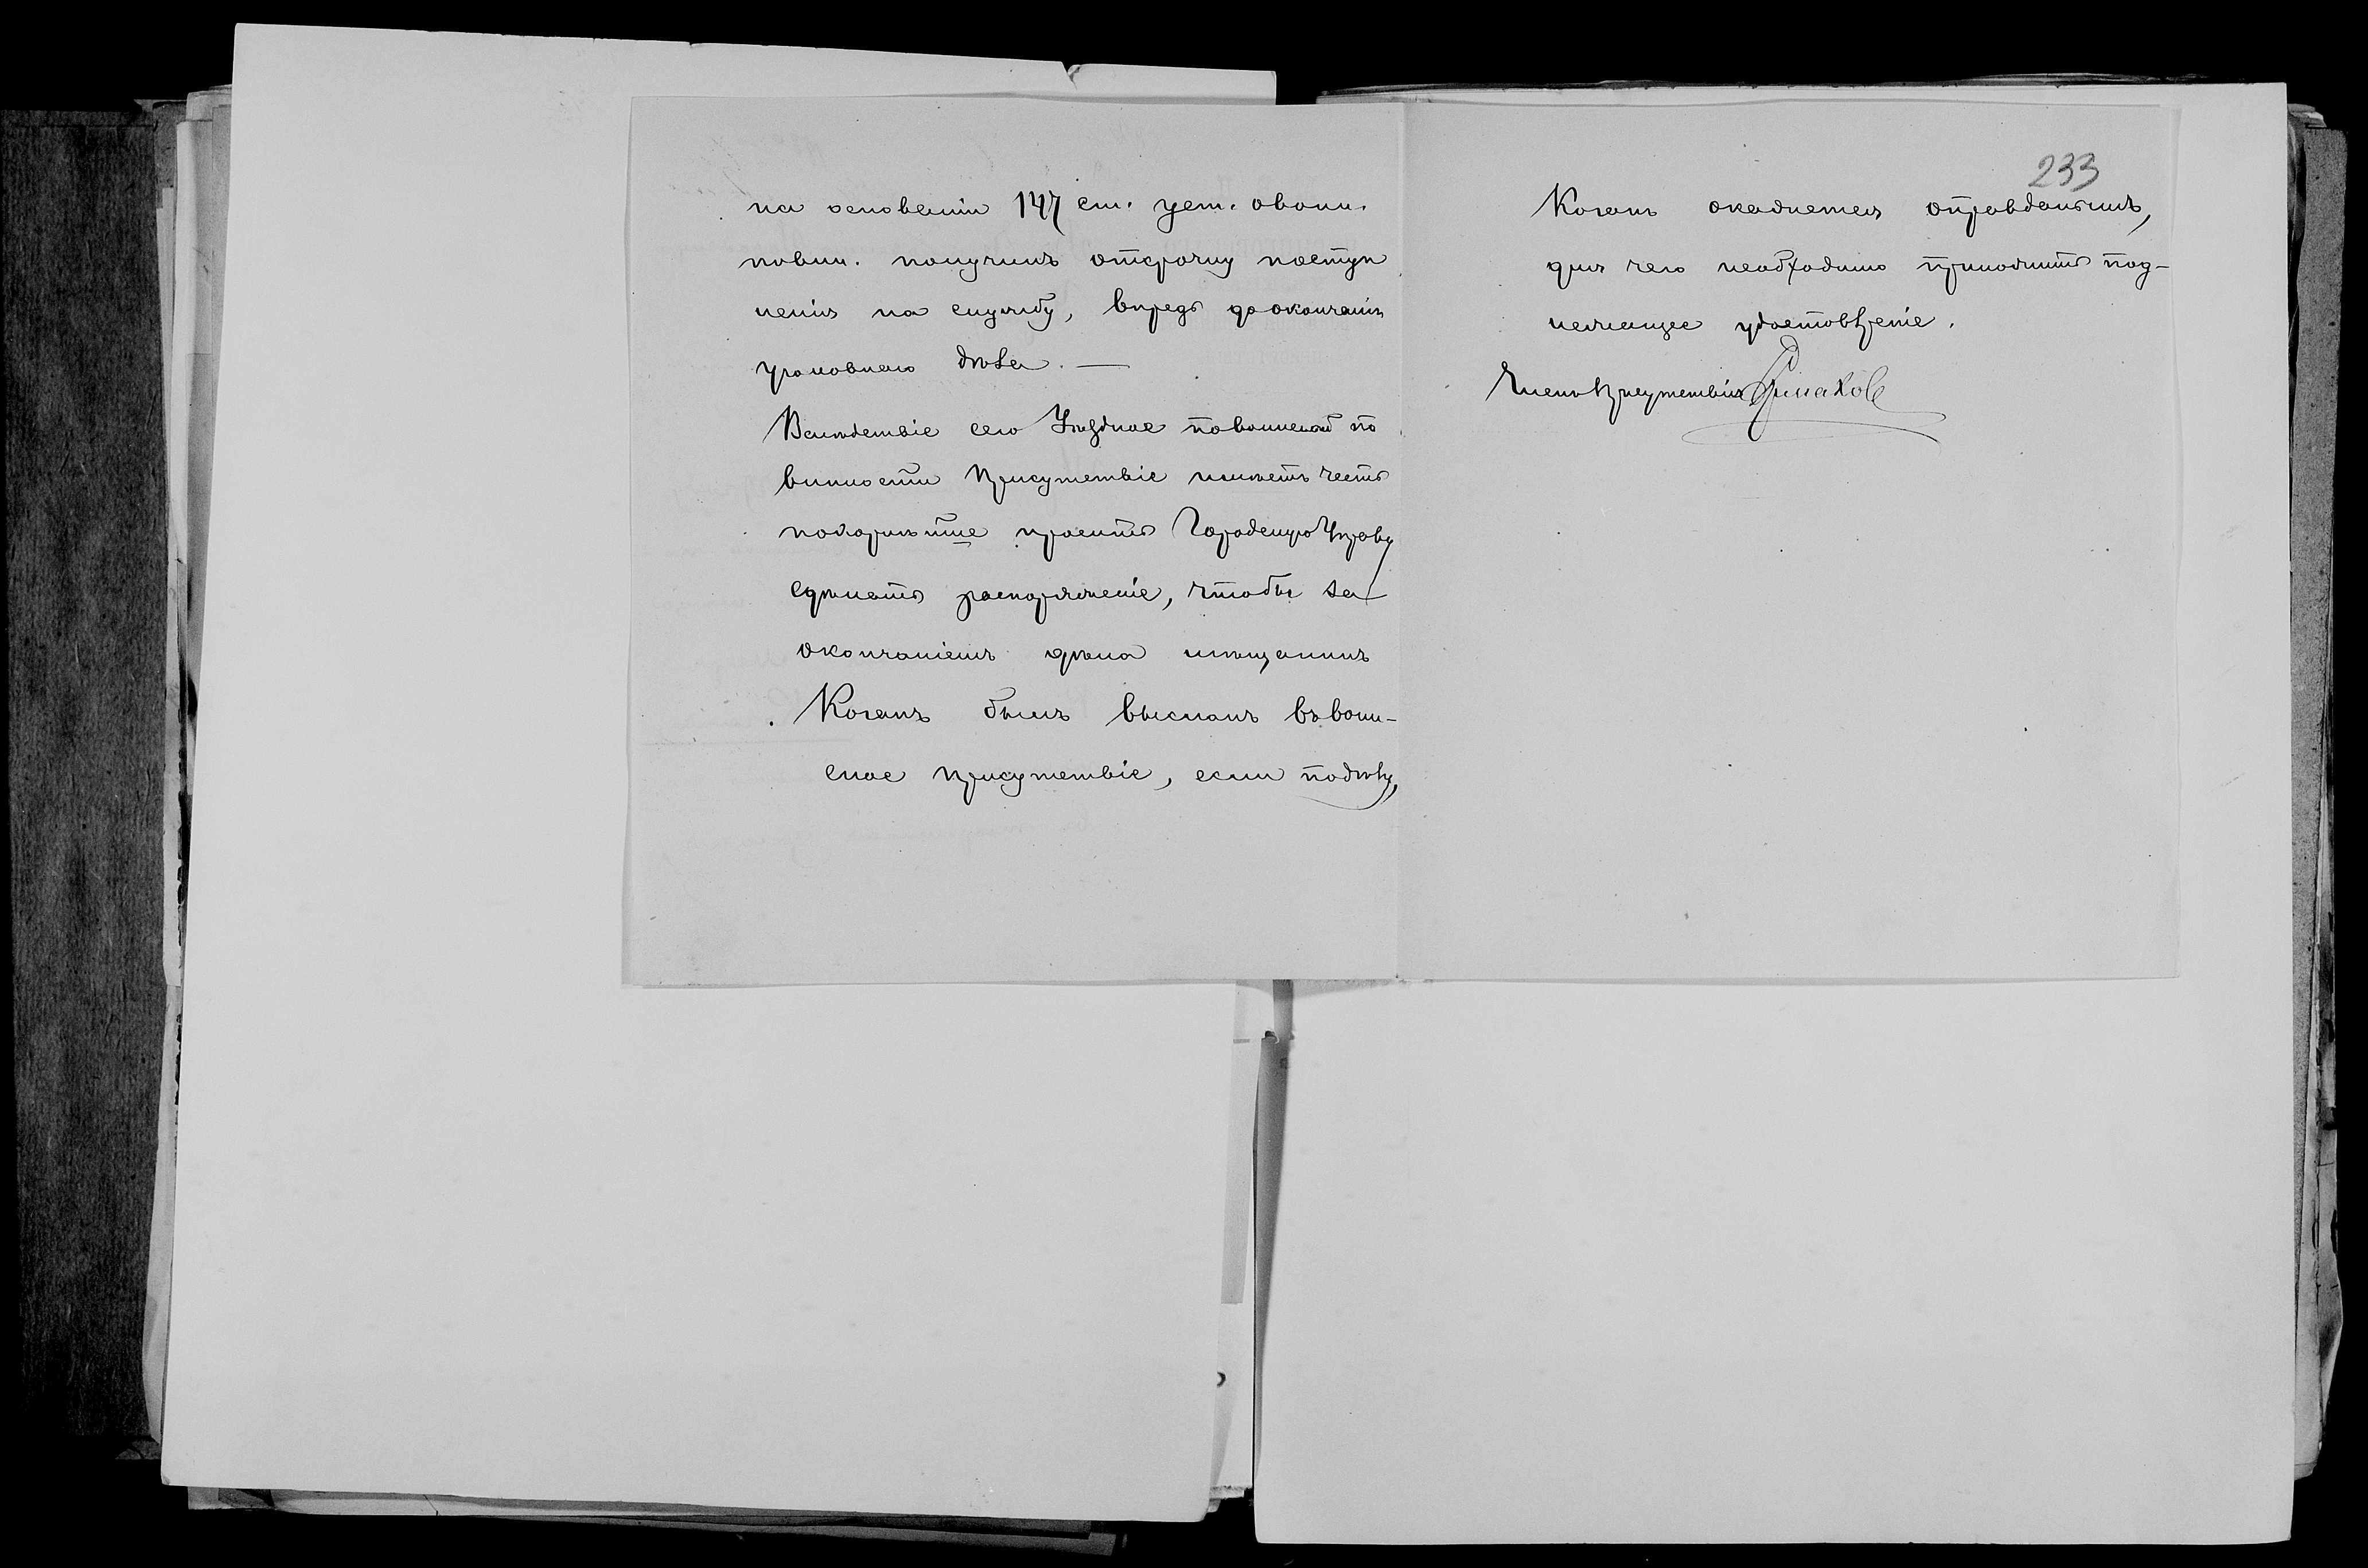 на основаніи 147 ст. уст. овоин.
повин. получилъ отсрочку поступ
ленія на службу, впредь доокончанія
уголовнаго дѣла. —
Вслѣдствіе сего Уѣздное повоинской по
винности Присутствіе имѣетъ честь
покорнѣйше просить Городскую Управу
сдѣлать распоряженіе, чтобы за
окончаніемъ дѣла мѣщанинъ
Коганъ былъ высланъ въвоин-
ское присутствіе, если подсуд.
233
Коганъ окажется оправданымъ,
для чего необходимо приложить под-
лежащее удостовѣреніе.
Членъ Присутствія